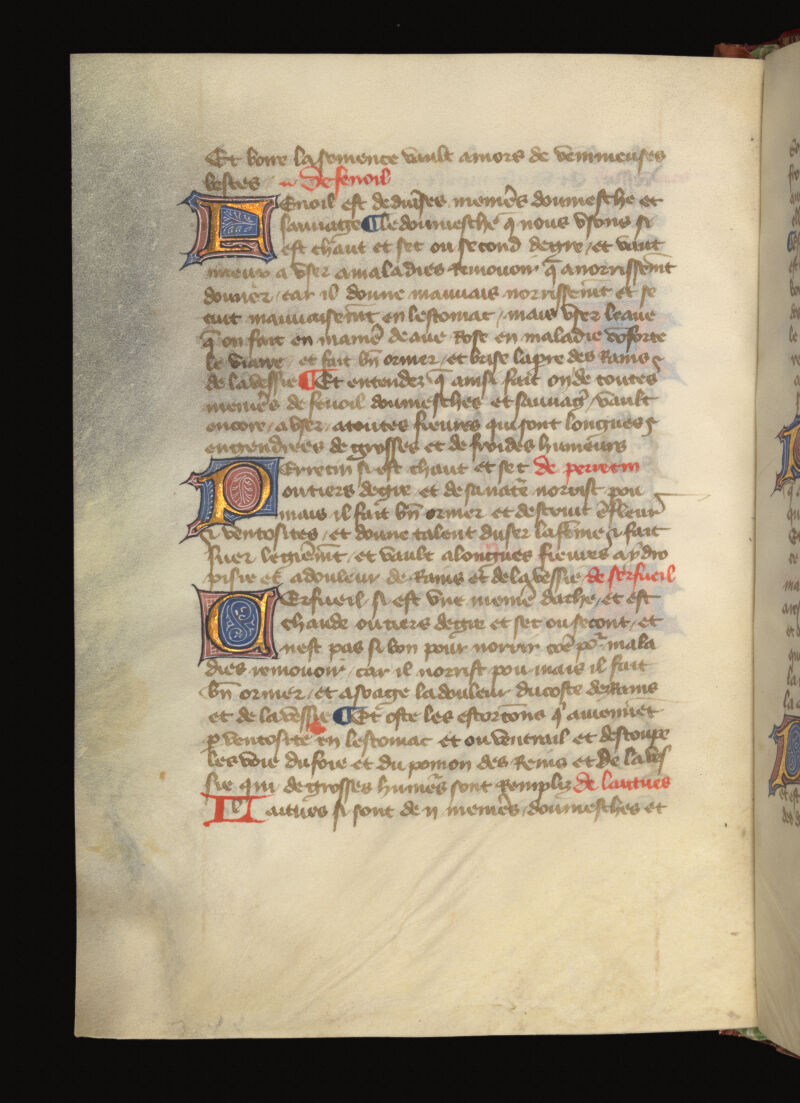 Et boire la semence vault a mors de venimeuses
bestes de fenoil
FEnoil est de dui͛ses meme͛s doumesche et
sauuage ¶ le doumesche q̄ nous vsons si
est chaut et sec ou second degre / et vaut
mieux a vser a maladies remouoir q̄ a norrissemt̄
donner / car il donne mauuais norrissemt̄ et se
cuit mauuaisemt̄ en lestomac / mais vser leaue
q̄ on fait en manie͛ de aue rose en maladie c̄forte
le viaire et fait bn̄ oriner / et brise la pre des Rains ⁊
de la vessie ¶ Et entendez q̄ ainsi fait on de toutes
meme͛s de fenoil doumesches et sauuag͛ / vault
encore / a vser / a toutes fieures qui sont longues ⁊
engendrees de grosses et de froides humeurs
PErrecin si est chaut et sec de perrecin
ou tiers degre et de sa nate͛ norrist pou
mais il fait bn̄ oriner et destruit
ventosites / et donne talent duser la feme si fait
suer legierem̄t / et vault a longues fieures a ydro
pisie et a douleur de Rains et de la vessie / de serfueil
CErfueil si est vne meme͛ dache / et est
chaude ou tiers degre et sec ou second / et
nest pas si bon pour norrir coē po͛ mala
dies remouoir / car il norrist pou mais il fait
bn̄ oriner / et asoage la douleur du coste des Rains
et de la vessie ¶ Et oste les estorcons q̄ auienent
ꝑ ventosite en lestomac et ou ventrail et destoupe
les voie du foie et du pomon des Reins et de la ves
sie qui de grosses hume͛s sont Remplis de laitues
LLaitues si sont de ii meme͛s / doumesches et